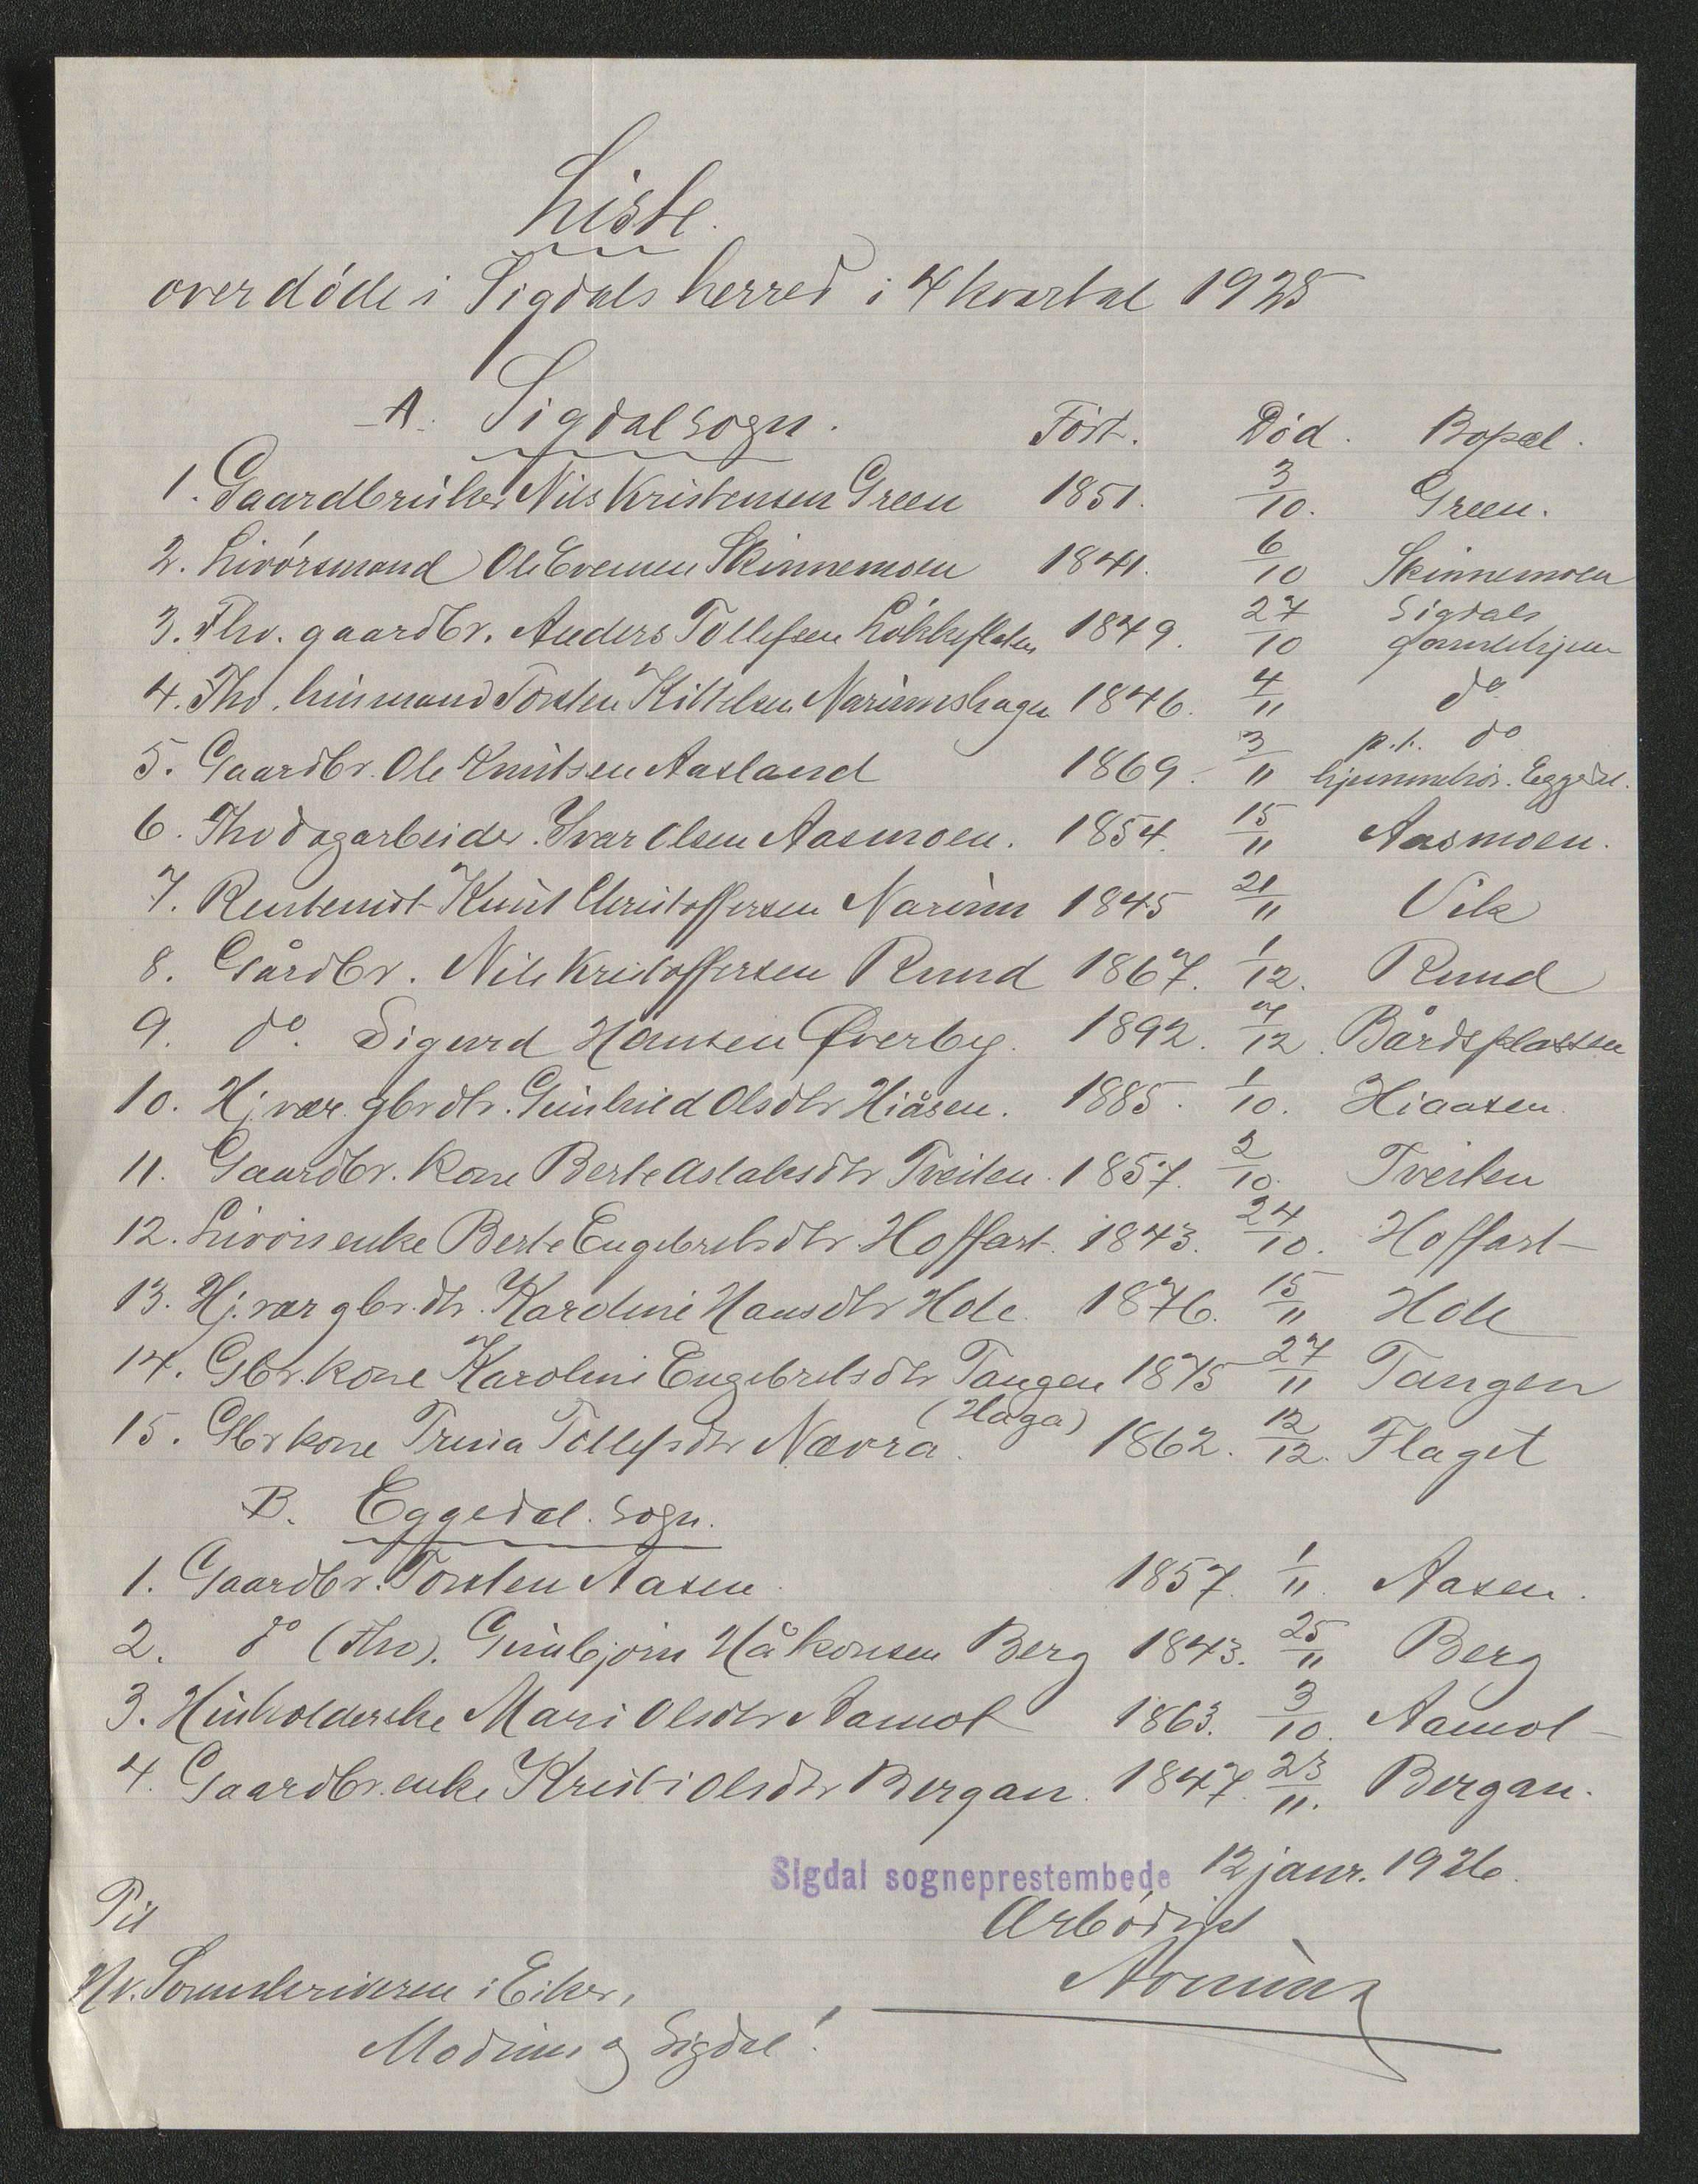 Liste.
over døde i Sigdals herred i 4 kvartal 1925
A. Sigdal sogn. Født. Død. Bopæl.
1. Gaardbruker Nils Kristensen Green 1851. 3/10. Green.
2. Livørsmand Ole Evensen Skinnemoen 1841. 6/10 Skinnemoen
3. Fhv. gaardbr. Anders Tollefsen Løkkeflaten 1849. 27/10 Sigdals gamlehjem
4. Fhv. husmand Torsten Kittelsen Narumshagen 1846. 4/11 do
5. Gaardbr. Ole Knutsen Aasland 1869. 3/11 p.t. do hjemmehør. Eggedal.
6. Fhv dagarbeider. Ivar Olsen Aasmoen. 1854. 15/11 Aasmoen.
7. Rentenist Knut Christoffersen Narum 1845 21/11 Vik
8. Gårdbr. Nils Kristoffersen Rund 1867. 1/12. Rund
9. do. Sigurd Hansen Øverby. 1892. 7/12. Bårdsplassen
10. Hj. vær. gbr dtr. Gunhild Olsdtr Hiåsen. 1885. 1/10. Hiaasen.
11. Gaardbr. kone Berte Aslaksdtr Tveiten. 1857. 2/10. Tveiten
12. Livørsenke Berte Engebretsdtr Hoffart. 1843. 24/10. Hoffart
13. Hj. vær gbr. dtr. Karoline Hansdtr Hole. 1876. 15/11 Hole
14. Gbr. kone Karoline Engebretsdtr Tangen 1875 27/11 Tangen
15. Gbr kone Trina Tollefsdtr Nævra (Haga). 1862. 12/12. Flaget
B. Eggedal. sogn.
1. Gaardbr. Torsten Aasen. 1857. 1/11. Aasen.
2. do (Fhv). Gunbjørn Håkonsen Berg 1843. 25/11 Berg
3. Husholderske Mari Olsdtr Aamot 1863. 3/10. Aamot
4. Gaardbr. enke Kristi Olsdtr Bergan. 1847. 23/11. Bergan.
Sigdal sogneprestembede 12 janr. 1926.
Ærbødigst
Til
Hr. Sorenskriveren i Eiker,
Modum og Sigdal!